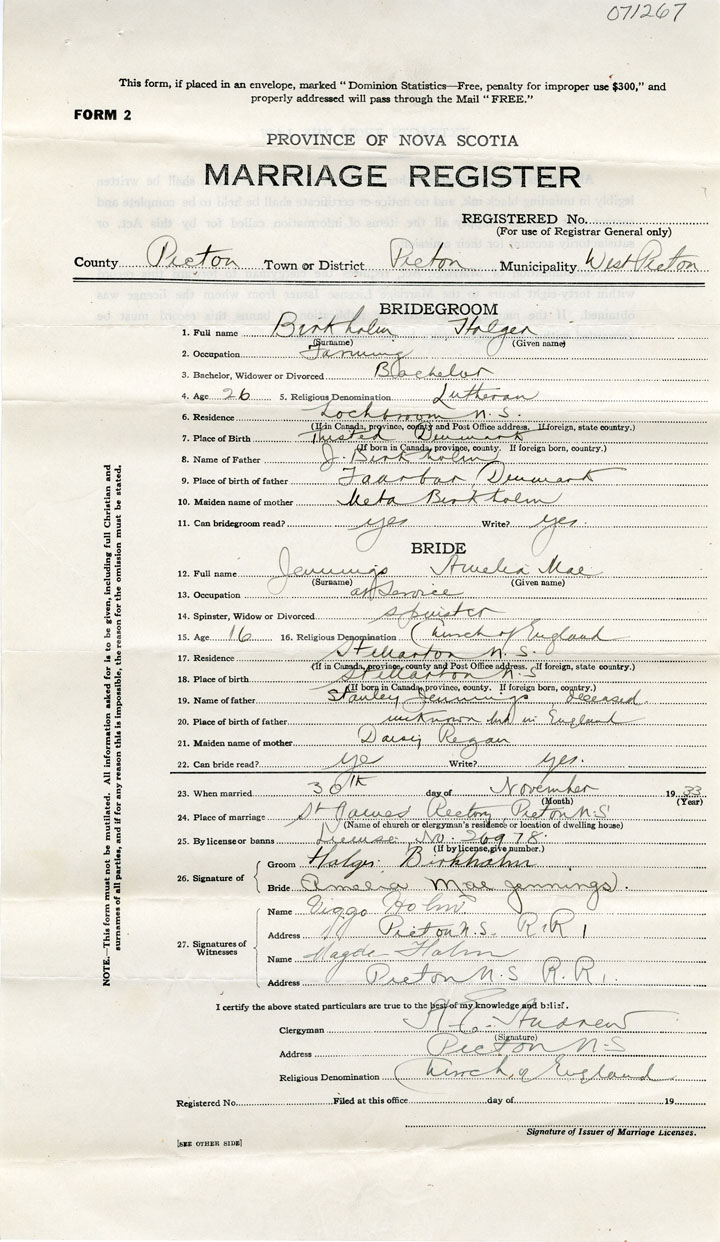 071267
This form, if placed in an envelope, marked "Dominion Statistics—Free, penalty for improper use $300," and
properly addressed will pass through the Mail "FREE."
FORM 2
PROVINCE OF NOVA SCOTIA
MARRIAGE REGISTER
REGISTERED No.
(For use of Registrar General only)
County Pictou Town or District Pictou Municipality West Pictou
BRIDEGROOM
1. Full name Birkholm Holger
(Surname) (Given name)
2. Occupation Farming
3. Bachelor, Widower or Divorced Bachelor
4. Age 26 5. Religious Denomination Lutheran
6. Residence Lochbroom N.S.
(If in Canada, province, county and Post Office address. If foreign, state country.)
7. Place of Birth Thisted Denmark
(If born in Canada, province, county. If foreign born, country.)
8. Name of Father J. Birkholm
9. Place of birth of father Denmark
10. Maiden name of mother Meta Birkholm
11. Can bridegroom read? yes Write? yes.
BRIDE
12. Full name Jennings Amelia Mae
(Surname) (Given name)
13. Occupation at Service
14. Spinster, Widow or Divorced spinster
15. Age 16 16. Religious Denomination Church of England
17. Residence Stellarton N.S.
(If in Canada, province, county and Post Office address. If foreign, state country.)
18. Place of birth Stellarton N.S
(If born in Canada, province, county. If foreign born, country.)
19. Name of father Stanley Jennings deceased.
20. Place of birth of father unknown but in England
21. Maiden name of mother Daisy Regan
22. Can bride read? ye Write? yes.
23. When married 30th day of November 1933
(Month) (Year)
24. Place of marriage St James Rectory Pictou N.S
(Name of church or clergyman's residence or location of dwelling house)
25. By license or banns License No. 26978
(If by license, give number.)
26. Signature of
Groom Holger Birkholm
Bride Amelia Mae Jennings
27. Signatures of Witnesses
Name Viggo Holm
Address Pictou N.S. R.R 1
Name Magda Holm
Address Pictou N.S R.R.1.
I certify the above stated particulars are true to the best of my knowledge and belief.
Clergyman A.E. Andrew
(Signature)
Address Pictou N-S
Religious Denomination Church of England
Registered No. Filed at this office day of 19
Signature of Issuer of Marriage Licenses.
[SEE OTHER SIDE]
NOTE.—This form must not be mutilated. All information asked for is to be given, including full Christian and
surnames of all parties, and if for any reason this is impossible, the reason for the omission must be stated.